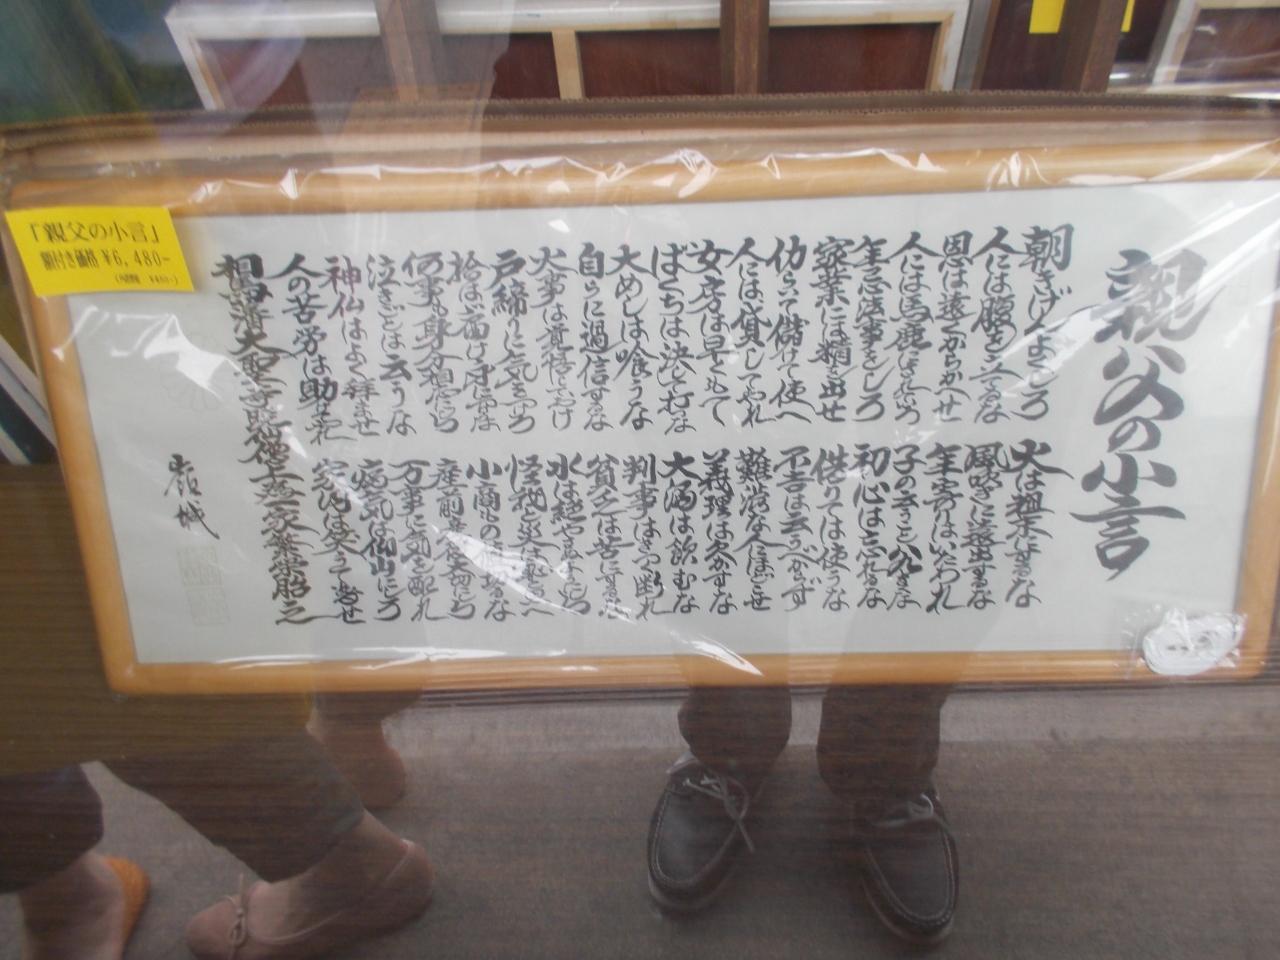 親父の小言
朝きげんよくしろ
火は粗末にするな
人には腹を立てるな
風吹きに遠出するな
恩は遠くからかへせ
年寄はいたわれ
人には馬鹿にされていろ
子の言うこと八九きくな
年忌法事をしろ
初心は忘れるな
家業には精を出せ
借りては使うな
仂らいて儲けて使へ
不吉は云うべからず
人には貸してやれ
難渋な人にほどこせ
女房は早くもて
義理は欠かすな
ばくちは決して打な
大酒は飲むな
大めしは喰うな
判事はきつく断れ
自らに過信するな
貧乏は苦にするな
火事は覚悟しておけ
水は絶やさぬようにしろ
戸締りに気をつけろ
怪我と災は恥と思へ
拾はば届け身につけるな
小商ものを値切るな
何事も身分相応にしろ
産前産後大切にしろ
泣きごとは云うな
万事に気を配れ
神仏はよく拝ませ
病気は仙山にしろ
人の苦労は助けてやれ
家内は笑ふて暮せ
相馬藩大聖寺
「親父の小言」
額付き価格 ¥6,480-